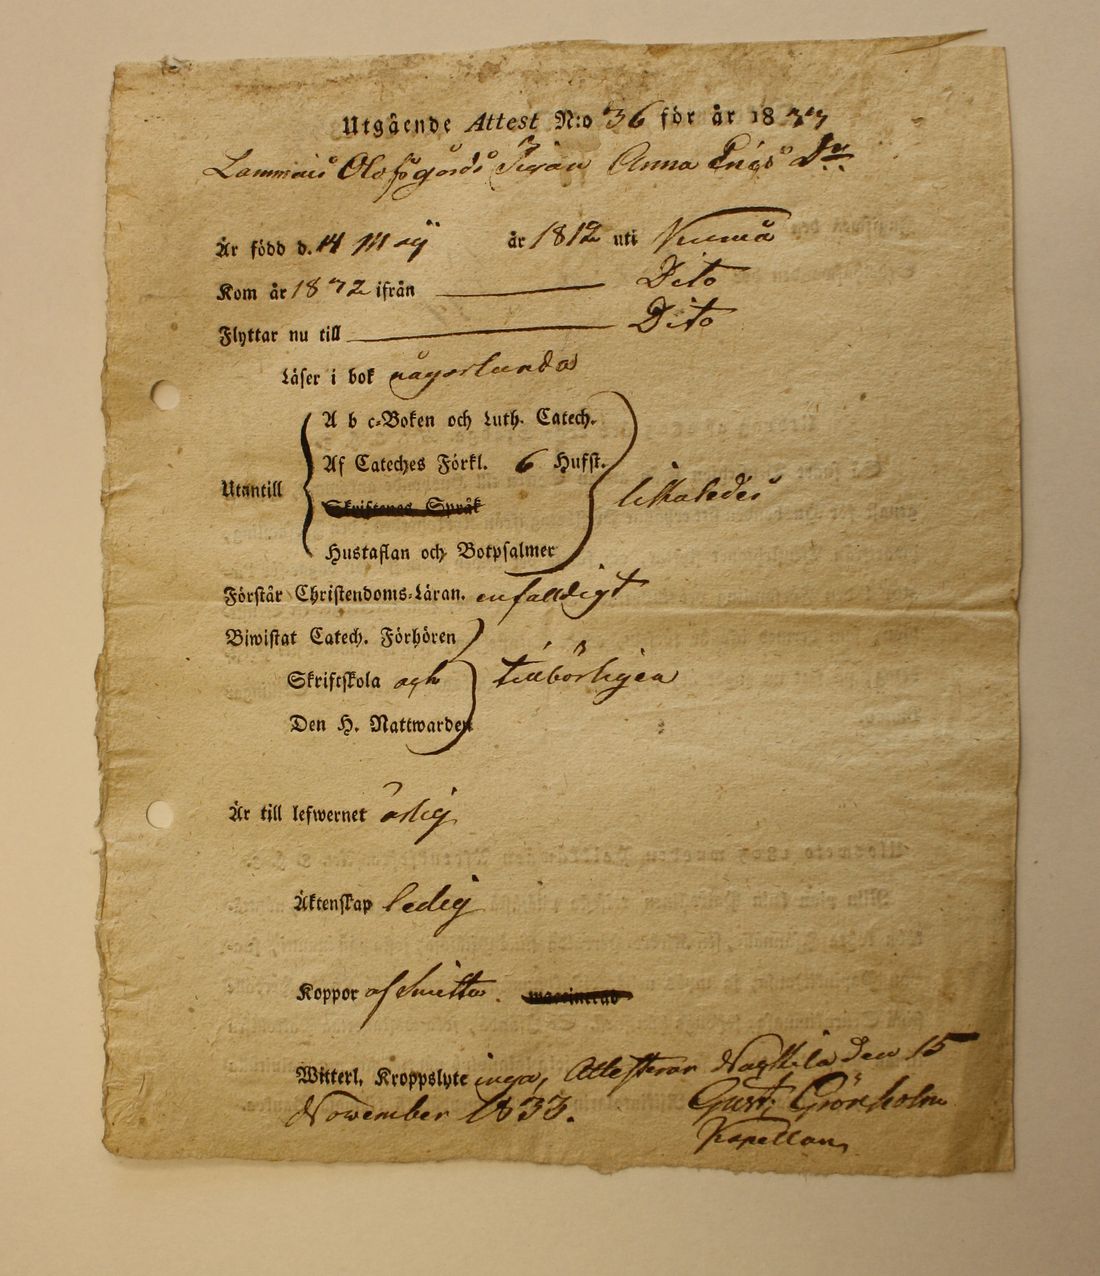 Utgående Attest N:o 36 för år 1833
Olofsgårds Pigan Anna
Är född d. 14 Maÿ år 1812 uti
Kom år 1832 ifrån Dito
Flyttar nu till Dito
Läser i bok någorlunda
A b c-Boken och Luth. Catech.
Af Cateches Förkl. 6 Hufst.
Utantill likaledes
Skriftenes Språk
Hustaflan och Botpsalmer
Förstår Christendoms-Läran. enfalldigt
Biwistat Catech. Förhören
Skriftskola och tillbörligen
Den H. Nattwarden
Är till lefwernet ärlig
Äktenskap ledig
Koppor af Smitta. waccinerad
Witterl. Kroppslyte inga, Attesterar Nagkila den 15
November 1833. Gust: Grönholm
Kapellan